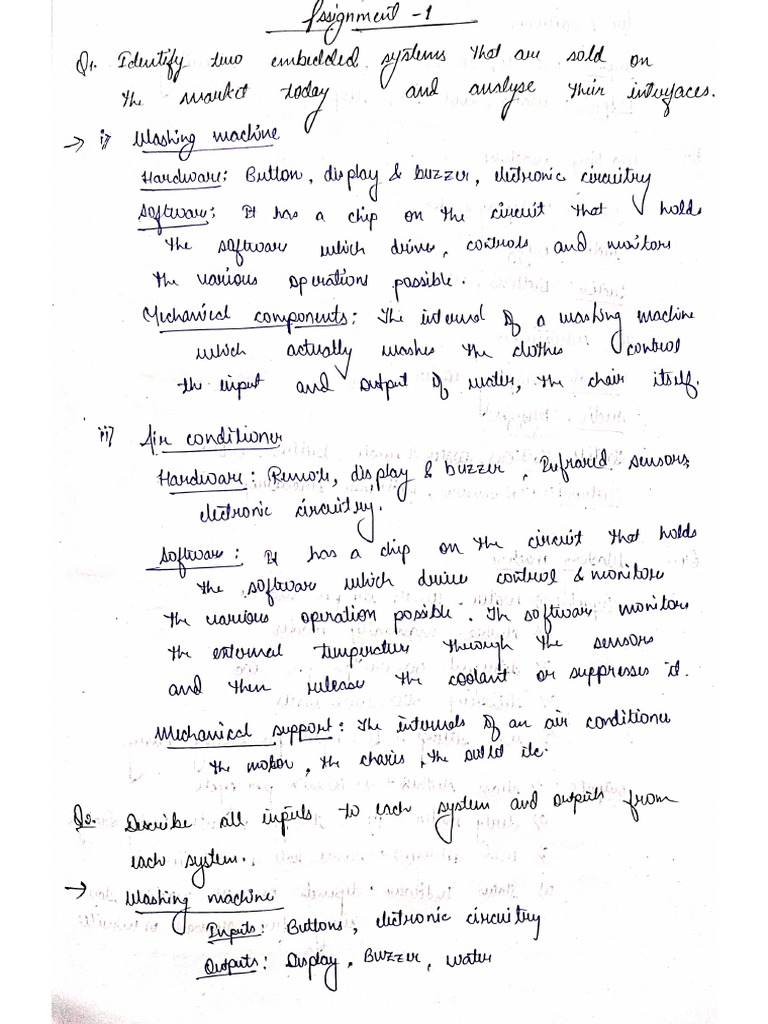 Assignment - 1
Q1. Identify two embedded systems that are sold on
the market today and analyse their interfaces.
→ i) Washing machine
Hardware: Button, display & buzzer, electronic circuitry
Software: It has a chip on the circuit that holds
the software which drives, controls and monitors
the various operations possible.
Mechanical components: The internal of a washing machine
which actually washes the clothes control
the input and output of water, the chair itself.
ii) Air conditioner
Hardware: Remote, display & buzzer, Infrared sensors,
electronic circuitry.
Software: It has a chip on the circuit that holds
the software which drive control & monitor
the various operation possible. The software monitors
the external temperature through the sensors
and then release the coolant or suppresses it.
Mechanical support: The internals of an air conditioner
the motor, the chasis, the etc.
Q2. Describe all inputs to each system and outputs from
each system.
→ Washing machine
Inputs: Buttons, electronic circuitry
Outputs: Display, Buzzer, water